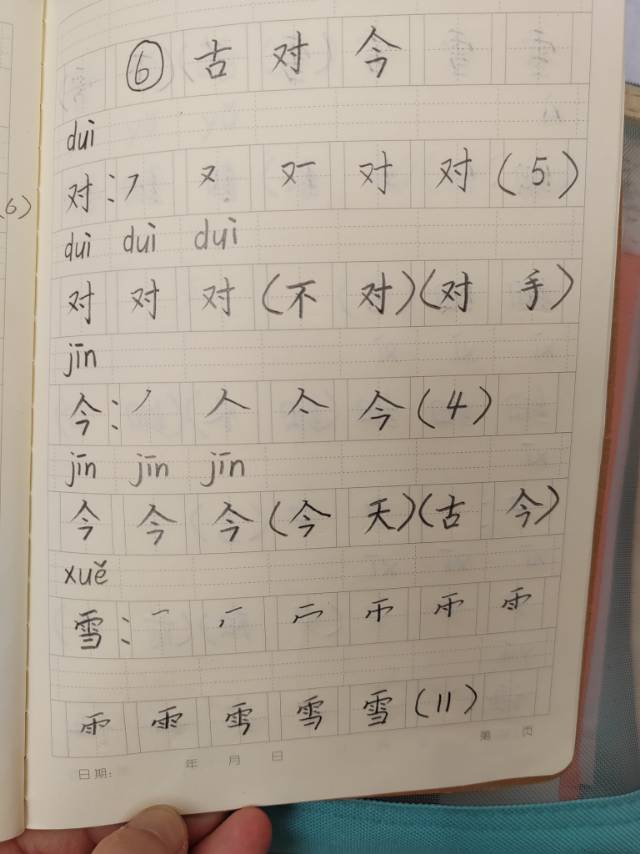 ⑥ 古对今
duì
对：㇇ 又 又一 对 对（5）
duì duì duì
对 对 对（不对）（对手）
jīn
今：丿 人 亼 今（4）
jīn jīn jīn
今 今 今（今天）（古今）
xuě
雪：一
雪（11）
日期： 年 月 日 第 页
（6）